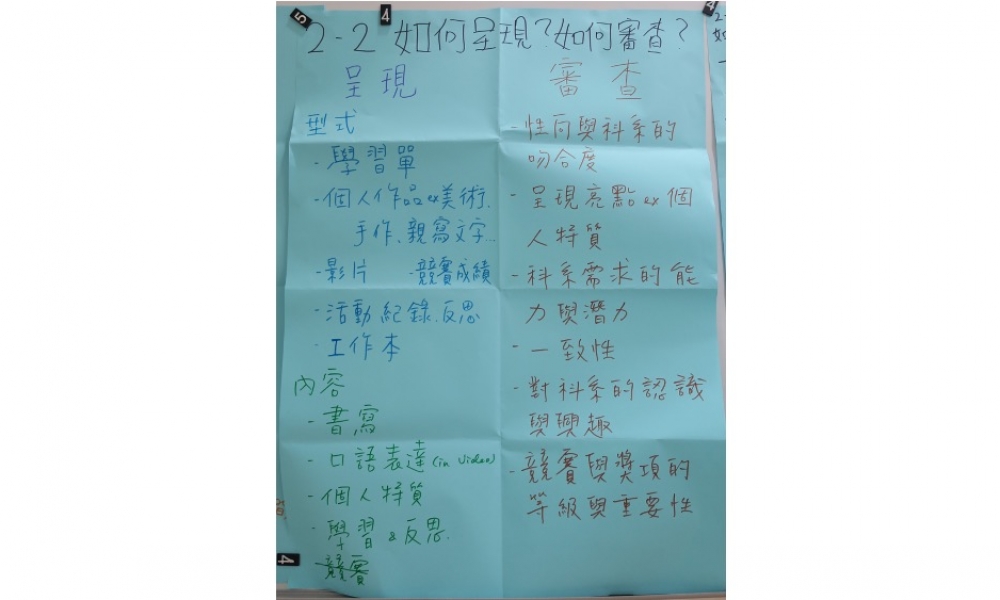 2-2 如何呈現？如何審查？
呈現
型式
- 學習單
- 個人作品 ex 美術、
手作、親寫文字...
- 影片 - 競賽成績
- 活動紀錄、反思
- 工作本
內容
- 書寫
- 口語表達 (in video)
- 個人特質
- 學習 & 反思
- 競賽
審查
- 性向與科系的
吻合度
- 呈現亮點 ex 個
人特質
- 科系需求的能
力與潛力
- 一致性
- 對科系的認識
與興趣
- 競賽與獎項的
等級與重要性
5
4
4